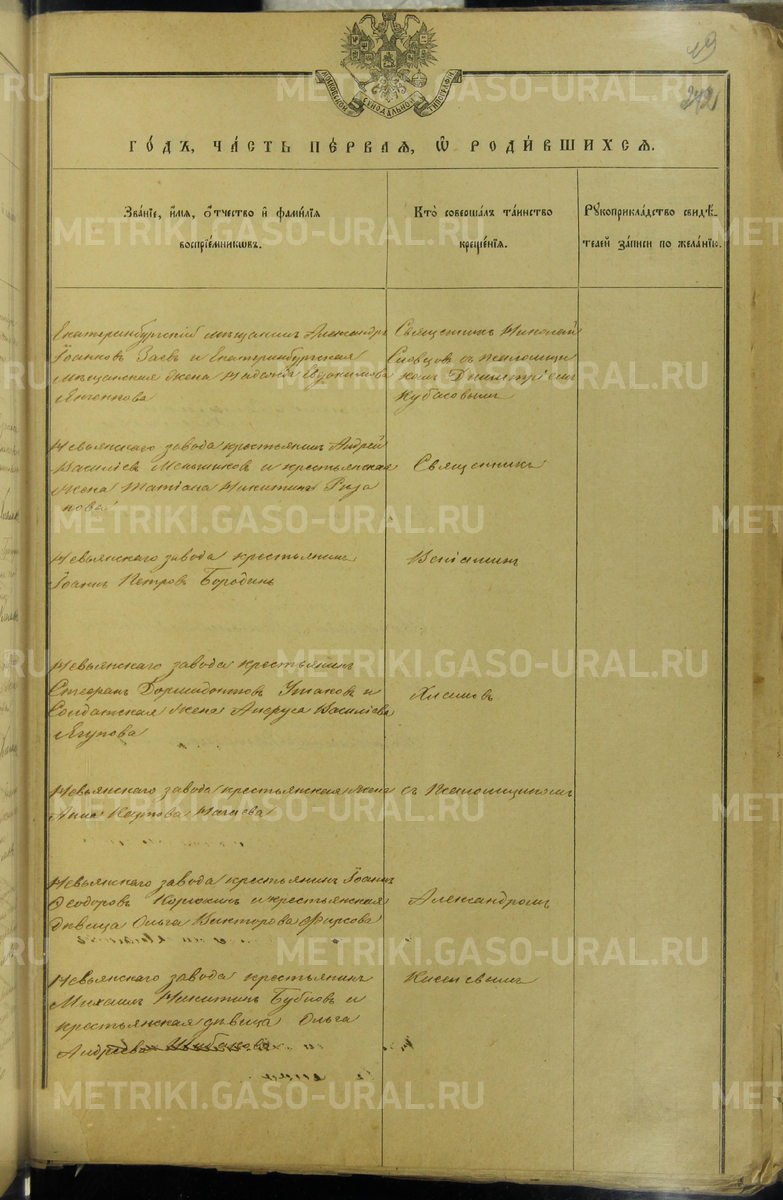 19
242
МОСКОВСКОЙ СѴНОДАЛЬНОЙ ТИПОГРАФІИ
ГО́ДЪ, ЧА́СТЬ ПЕ́РВАЯ, Ѡ РОДИ́ВШИХСЯ.
Зва́нїе, и́мя, о́тчество и҆ фами́лїя
воспрїе́мниковъ.
Кто̀ соверша́лъ та́инство
креще́нїя.
Рꙋкоприкла́дство свидѣ́-
телей за́писи по жела́нїю.
Екатеринбургскій мѣщанинъ Александръ
Іоанновъ Заевъ и Екатеринбургская
мѣщанская жена Надежда Евдокимова
Священникъ Николай
Словцовъ съ псаломщи
комъ Димитріемъ
Кубасовымъ
Невьянскаго завода крестьянинъ Андрей
Василіевъ Мельниковъ и крестьянская
жена Татіана Никитина Ряза
нова
Священникъ
Невьянскаго завода крестьянинъ
Іоаннъ Петровъ Бородинъ
Веніаминъ
Невьянскаго завода крестьянинъ
Стефанъ Дормидонтовъ Ушаковъ и
Солдатская жена Василіева
Ягупова
Хлыновъ
Невьянскаго завода крестьянская жена
Анна Карпова Нагаева
съ Псаломщикомъ
Невьянскаго завода крестьянинъ Іоаннъ
Ѳеодоровъ Корюкинъ и крестьянская
дѣвица Ольга Викторова Фирсова
Александромъ
Невьянскаго завода крестьянинъ
Михаилъ Никитинъ Бубновъ и
крестьянская дѣвица Ольга
Андреева Шибанова
METRIKI.GASO-URAL.RU